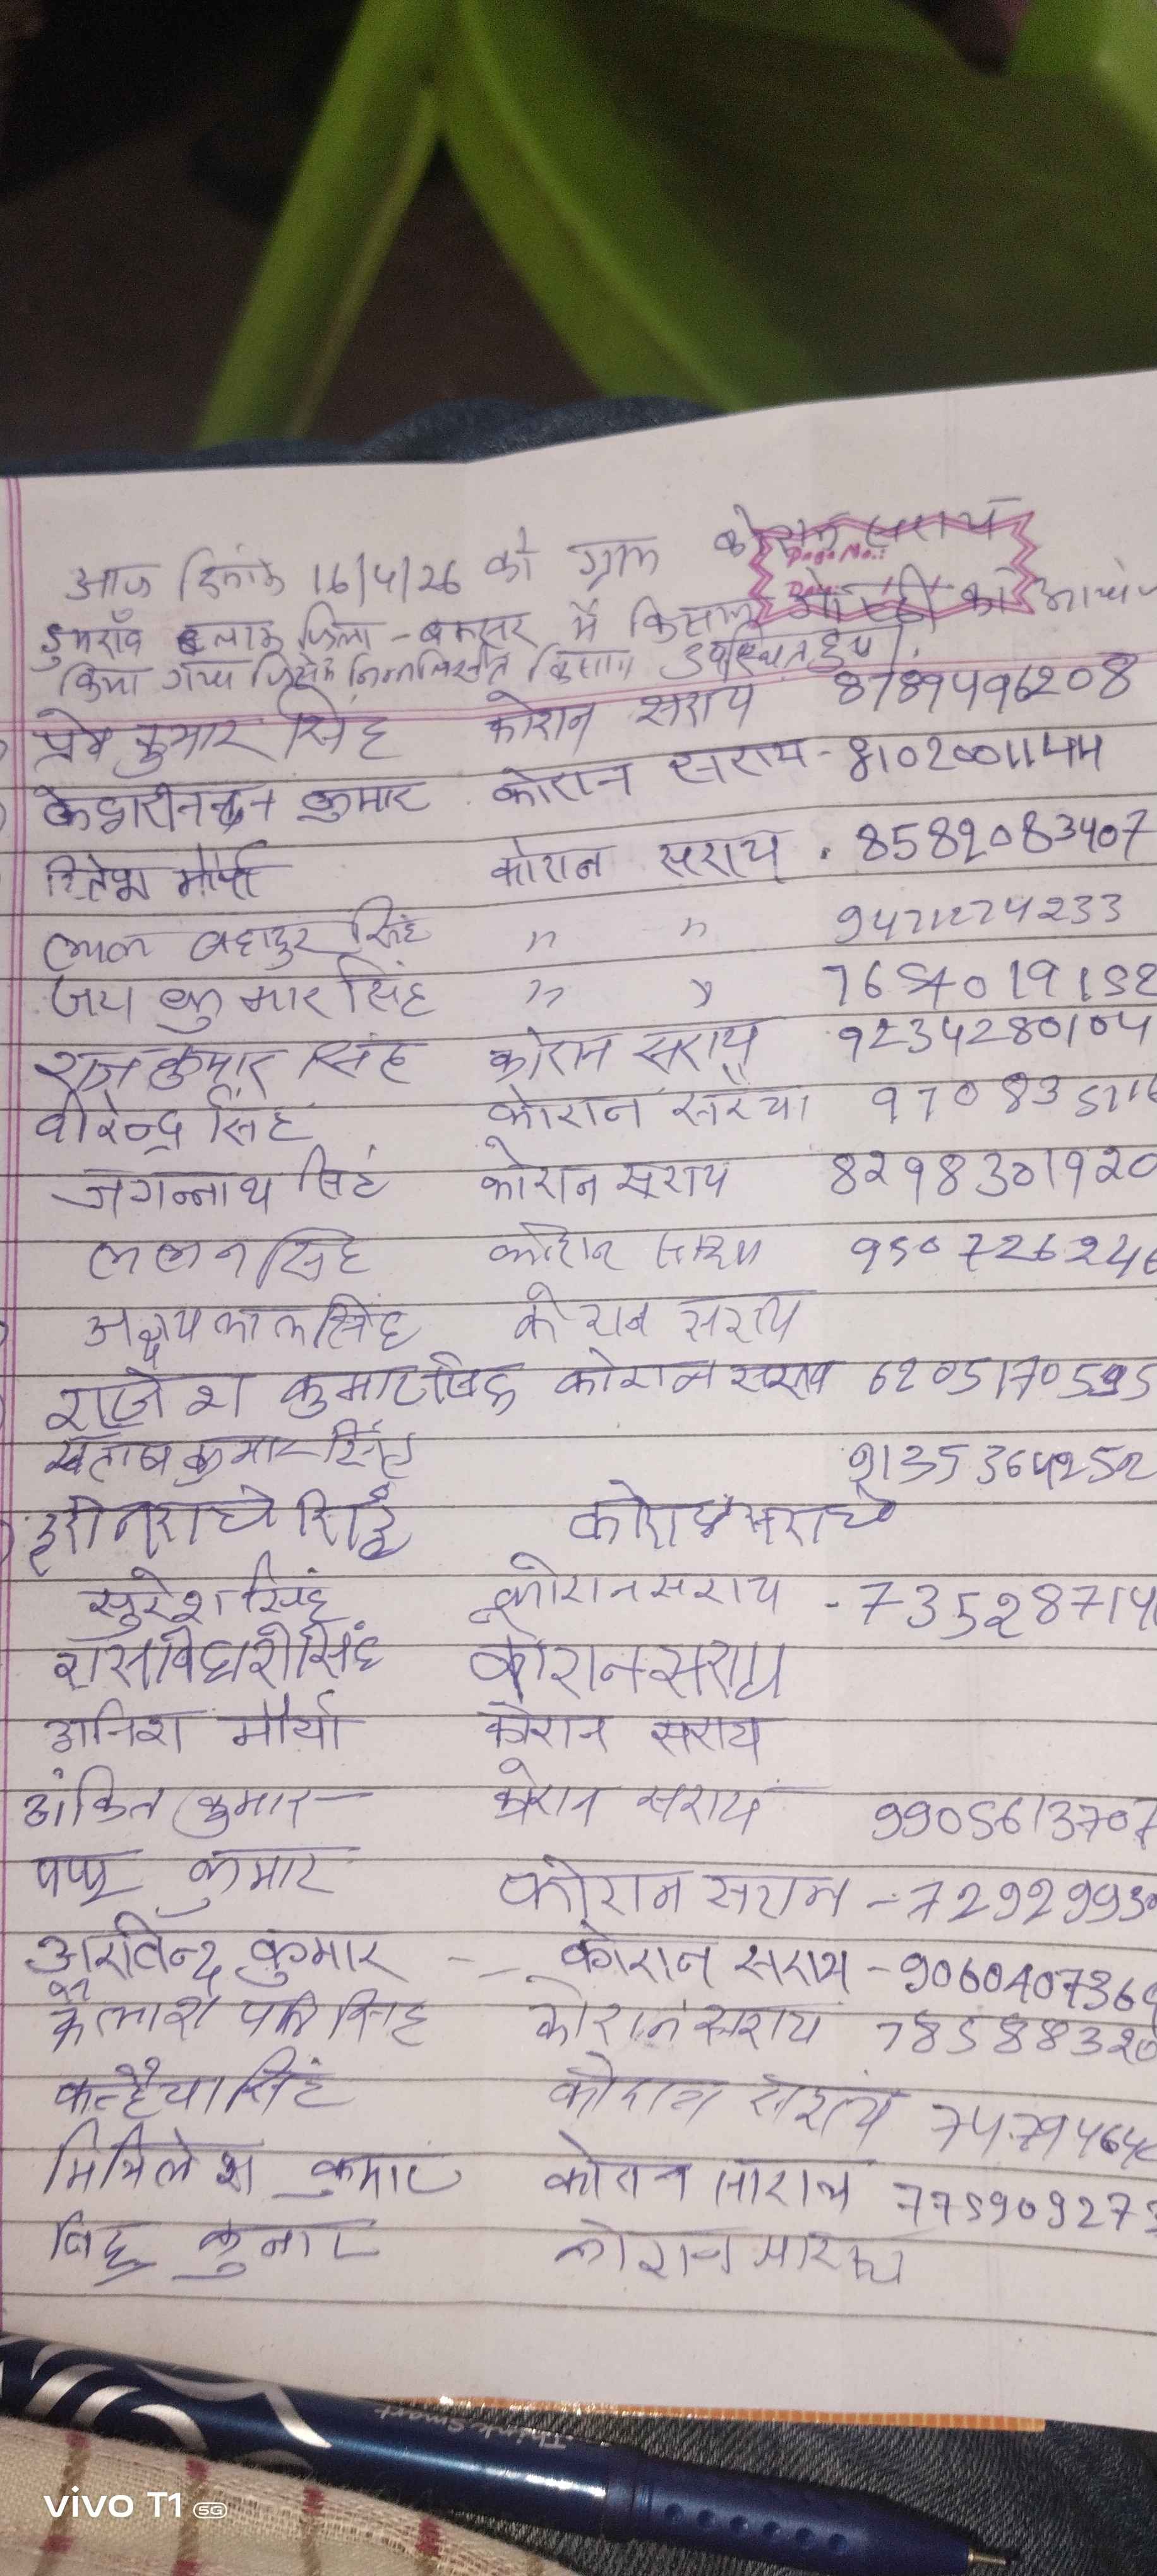 आज दिनांक 16/4/26 को ग्राम कोरान सराय
डुमराँव ब्लाक जिला - बक्सर में किसान गोष्ठी का आयोज
किया गया जिसमें निम्नलिखीत किसान उपस्थित हुए।
प्रेम कुमार सिंह कोरान सराय 8789496208
कुमार कोरान सराय - 8102001144
रितेश मौर्या कोरान सराय . 8582083407
लाल बहादुर सिंह " "
जय कुमार सिंह " "
राज कुमार सिंह कोरान सराय 9234280104
वीरेन्द्र सिंह कोरान सरैया
जगन्नाथ सिंह कोरान सराय 8298301920
ललन सिंह कोरान 950726246
अक्षय लाल सिंह कोरान सराय
राजेश कुमार सिंह कोरान सराय 6205170595
कुमार सिंह 9135364252
सिंह
सुरेश सिंह कोरान सराय - 73528714
रासविहारी सिंह कोरान सराय
अनिश मौर्या कोरान सराय
अंकित कुमार कोरान सराय 9905613707
पप्पू कुमार कोरान सराय - 7292993
अरविन्द कुमार -- कोरान सराय - 906040736
कैलाश पति सिंह कोरान सराय 78588320
कन्हैया सिंह कोरान सराय 7479464
मिथिलेश कुमार कोरान 775909273
कुमार कोरान
vivo T1 5G
Think Smart
Page No.: